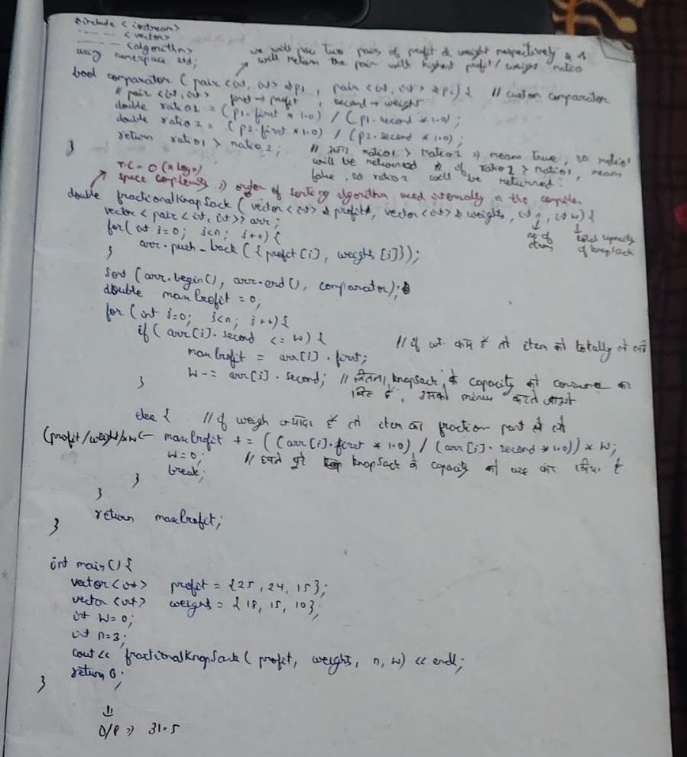 #include <iostream>
<vector>
<algorithm>
using namespace std;
we will pass two pairs of profit & weight respectively & it
will return the pair with highest profit/weight ratio
bool comparator (pair<int, int> &p1, pair<int, int> &p2) { // custom comparator
// pair <int, int> first → profit, second → weight
double ratio1 = (p1.first * 1.0) / (p1.second * 1.0);
double ratio2 = (p2.first * 1.0) / (p2.second * 1.0);
return ratio1 > ratio2; // अगर ratio1 > ratio2 => means true, so ratio1
will be returned & if ratio2 > ratio1, means
false, so ratio2 will be returned.
}
T.C = O(n log n)
space complexity => order of sorting algorithm used internally in the compiler
double fractionalKnapSack (vector<int> &profit, vector<int> &weights, int n, int w) {
no. of items
total capacity of knapSack
vector <pair<int, int>> arr;
for(int i=0; i<n; i++) {
arr.push_back ({profit[i], weight[i]});
}
Sort (arr.begin(), arr.end(), comparator);
double maxProfit = 0;
for (int i=0; i<n; i++) {
if (arr[i].second <= W) { // if wt. कम है तो item को totally ले लो
maxProfit = arr[i].first;
W -= arr[i].second; // जितना knapSack के capacity को consume कर
लिए है, उसको minus करते जाओ
}
else { // if weigh ज्यादा है तो item का fraction part ले लो
(profit/weight)*w ← maxProfit += ((arr[i].first * 1.0) / (arr[i].second * 1.0)) * W;
W = 0; // हमने पूरे knapSack के capacity को use कर लिया है
break;
}
}
return maxProfit;
}
int main() {
vector<int> profit = {25, 24, 15};
vector<int> weights = {18, 15, 10};
int W=0;
int n=3;
cout << fractionalKnapSack (profit, weights, n, w) << endl;
return 0;
}
⇓
O/P => 31.5